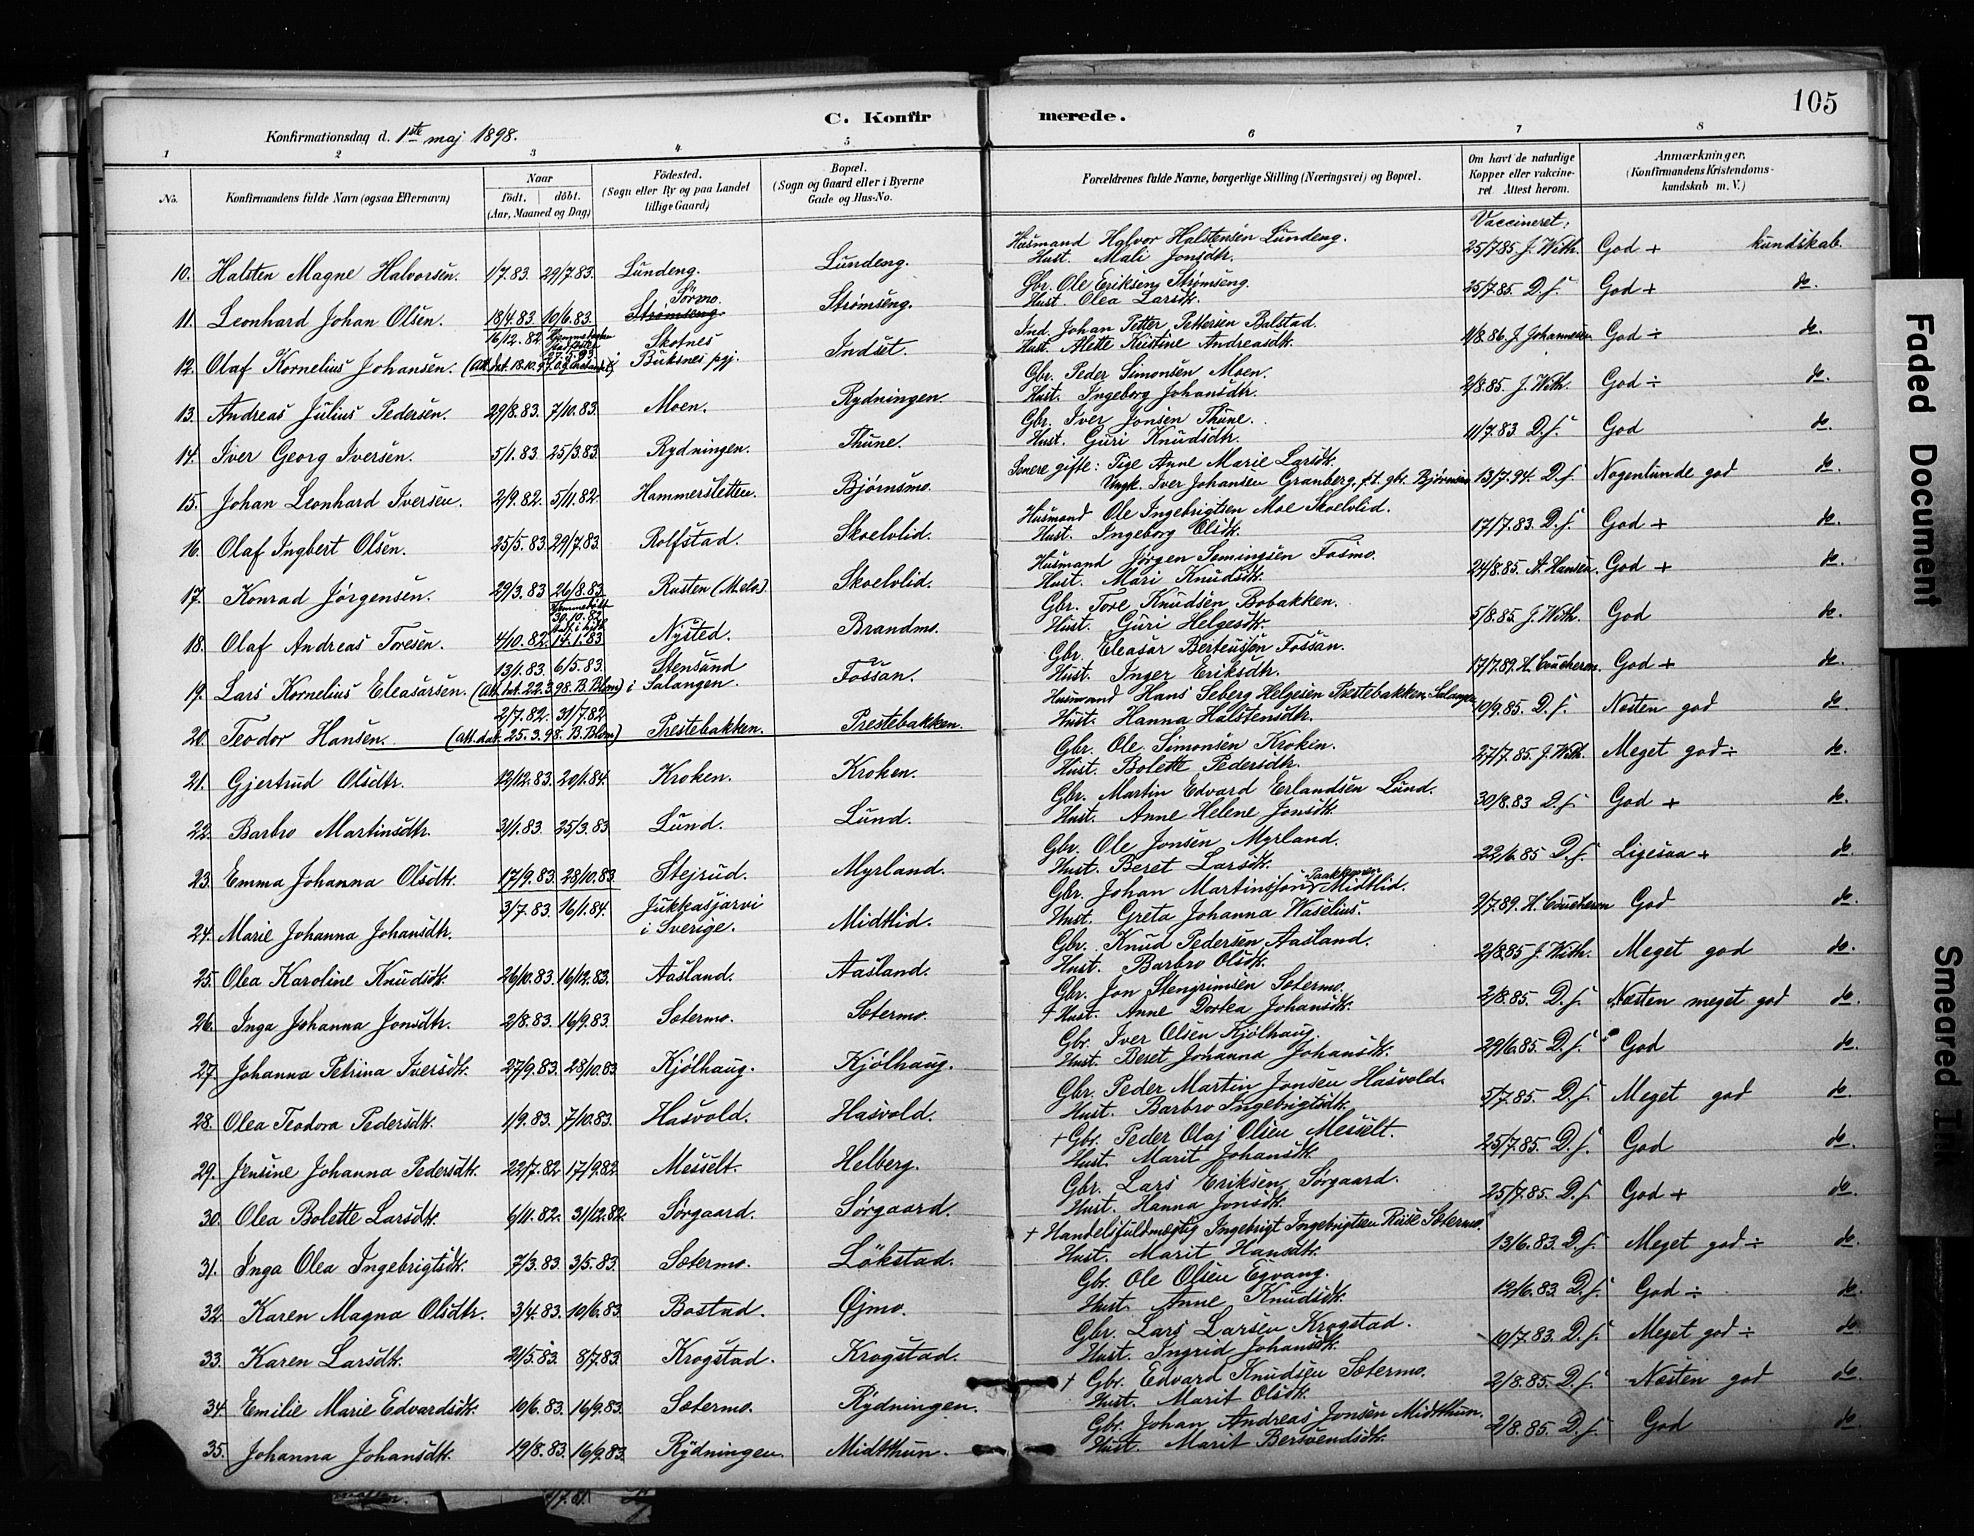 105
C. Konfirmerede.
Konfirmationsdag d. 1ste maj 1898.
1 2 3 4 5 6 7 8
No. Konfirmandens fulde Navn (ogsaa Efternavn) Naar født. døbt. (Aar, Maaned og Dag) Födested. (Sogn eller By og paa Landet tillige Gaard) Bopæl. (Sogn og Gaard eller i Byerne Gade og Hus-No. Forældrenes fulde Navne, borgerlige Stilling (Næringsvei) og Bopæl. Om havt de naturlige Kopper eller vaccineret. Attest herom. Anmærkninger. (Konfirmandens Kristendomskundskab m. V.)
Vaccineret:
10. Halsten Magne Halvorsen. 1/7.83. 29/7.83. Lundeng. Lundeng. Husmand Halvor Halstensen Lundeng. 25/7.85 J. With. God + kundskab.
Hust. Mali Jonsdtr.
11. Leonhard Johan Olsen. 18/4.83. 10/6.83. Sörmo. Strømseng. Strømseng. Gbr. Ole Eriksen Strømseng. 25/7.85. D.s. God + do.
Hust. Olea Larsdtr.
12. Olaf Kornelius Johansen. 16/12.82 (Att. dat. 18.10.97. Skotnes i Buksnes pgj. Indset. Ind. Johan Petter Pettersen Balstad. 1/8.86 J. Johannesen God ÷ do.
Hust. Alette Kristine Andreasdtr.
13. Andreas Julius Pedersen. 29/8.83. 7/10.83. Moen. Rydningen. Gbr. Peder Simonsen Moen. 2/8.85. J. With. God ÷ do.
Hust. Ingeborg Johansdtr.
14. Iver Georg Iversen. 5/1.83. 25/3.83. Rydningen. Thune. Gbr. Iver Jonsen Thune. 11/7.83 D.s. God do.
Hust. Guri Knudsdtr.
15. Johan Leonhard Iversen. 2/9.82. 5/11.82. Hammersletten. Bjørnsmo. Senere gifte: Pige Anne Marie Larsdtr. 13/7.94. D.s. Nogenlunde god do.
Ungk. Iver Johansen Granberg, f.t. gbr. Bjørnsmo
16. Olaf Ingbert Olsen. 25/5.83. 29/7.83. Rolfstad. Skoelvlid. Husmand Ole Ingebrigtsen Moe Skoelvlid. 17/7.83. D.s. God + do.
Hust. Ingeborg Olsdtr.
17. Konrad Jørgensen. 29/3.83 26/8.83. Rusten (Melø). Skoelvlid. Husmand Jørgen Semingsen Fosmo. 24/8.85. A. Hansen. God + do.
Hust. Mari Knudsdtr.
18. Olaf Andreas Toresen. 4/10.82. Hjemmedøbt 30.10.82. 14.1.83 Nysted. Brandmo. Gbr. Tore Knudsen Bobakken. 5/8.85. J. With. God do.
Hust. Guri Helgesdtr.
19. Lars Kornelius Eleasarsen. 13/1.83. 6/5.83. (Att. dat. 22.3.98. B. Blom) Stensund i Salangen. Fossan. Gbr. Eleasar Berteussen Fossan. 17/7.89. H. Coucheron. God + do.
Hust. Inger Eriksdtr.
20. Teodor Hansen. 2/7.82. 31/7.82 (Att. dat. 25.3.98. B. Blom) Prestebakken. Prestebakken. Husmand Hans Seberg Helgesen Prestebakken Salangen. 10/9.85. D.s. Næsten god do.
Hust. Hanna Halstensdtr.
21. Gjertrud Olsdtr. 12/12.83. 20/1.84. Kroken. Kroken. Gbr. Ole Simonsen Kroken. 27/7.85. J. With. Meget god ÷ do.
Hust. Bolette Pedersdtr.
22. Barbro Martinsdtr. 31/1.83. 25/3.83. Lund. Lund. Gbr. Martin Edvard Erlandsen Lund. 30/8.83 D.s. God + do.
Hust. Anne Helene Jonsdtr.
23. Emma Johanna Olsdtr. 17/9.83. 28/10.83. Stejrud. Myrland. Gbr. Ole Jonsen Myrland. 22/6.85 D.s. Ligesaa + do.
Hust. Beret Larsdtr.
24. Marie Johanna Johansdtr. 3/7.83. 16/1.84. Jukkasjarvi i Sverige. Midtlid. Gbr. Johan Martinsson Midtlid. 2/7.89. H. Coucheron God do.
Hust. Greta Johanna Waselius.
25. Olea Karoline Knudsdtr. 26/10.83 16/12.83. Aasland. Aasland. Gbr. Knud Pedersen Aasland. 2/8.85 J. With. Meget god do.
Hust. Barbro Olsdtr.
26. Inga Johanna Jonsdtr. 2/8.83. 16/9.83. Sætermo. Sætermo. Gbr. Jon Stengrimsen Sætermo. 2/8.85. D.s. Næsten meget god do.
† Hust. Anne Dortea Johansdtr.
27. Johanna Petrina Iversdtr. 27/9.83. 28/10.83 Kjölhaug. Kjölhaug. Gbr. Iver Olsen Kjölhaug. 29/6.85. D.s. God do.
Hust. Beret Johanna Johansdtr.
28. Olea Teodora Pedersdtr. 1/9.83. 7/10.83. Hasvold. Hasvold. Gbr. Peder Martin Jonsen Hasvold. 5/7.85. D.s. Meget god do.
Hust. Barbro Ingebrigtsdtr.
29. Jensine Johanna Pedersdtr. 22/7.82 17/9.82. Messelt. Helberg. † Gbr. Peder Olaj Olsen Messelt. 25/7.85. D.s. God do.
Hust. Marit Johansdtr.
30. Olea Bolette Larsdtr. 6/11.82. 31/12.82. Sørgaard. Sørgaard. Gbr. Lars Eriksen Sørgaard. 25/7.85. D.s. God + do.
Hust. Hanna Jonsdtr.
31. Inga Olea Ingebrigtsdtr. 7/3.83. 3/5.83. Sætermo. Lökstad. † Handelsfuldmægtig Ingebrigt Ingebrigtsen Rise Sætermo. 13/6.83. D.s. Meget god ÷ do.
Hust. Marit Hansdtr.
32. Karen Magna Olsdtr. 3/4.83. 10/6.83. Bostad. Øjmo. Gbr. Ole Olsen Egvang. 12/6.83 D.s. God ÷ do.
Hust. Anne Knudsdtr.
33. Karen Larsdtr. 21/5.83. 8/7.83. Krogstad. Krogstad. Gbr. Lars Larsen Krogstad. 10/7.83. D.s. Meget god ÷ do.
Hust. Ingrid Johansdtr.
34. Emilie Marie Edvardsdtr. 10/6.83. 16/9.83. Sætermo. Rydningen. † Gbr. Edvard Knudsen Sætermo. 2/8.85. D.s. Næsten god do.
Hust. Marit Olsdtr.
35. Johanna Johansdtr. 19/8.83. 16/9.83. Rydningen. Midtthun. Gbr. Johan Andreas Jonsen Midtthun. 2/8.85. D.s. God do.
Hust. Marit Bersvendsdtr.
Faded Document
Smeared Ink